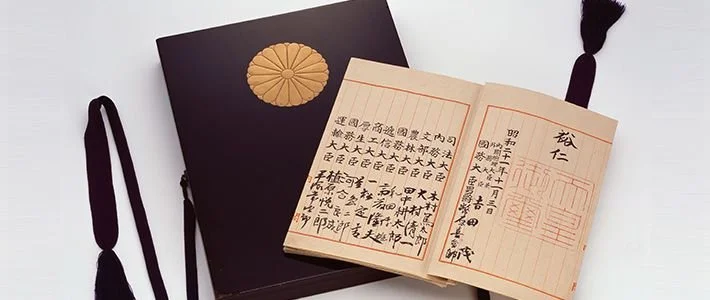 裕仁
天皇御璽
昭和二十一年十一月三日
內閣總理大臣兼
外務大臣 吉田茂
國務大臣 男爵 幣原喜重郎
司法大臣 木村篤太郎
內務大臣 大村清一
文部大臣 田中耕太郎
農林大臣 和田博雄
國務大臣 斎藤隆夫
遞信大臣 一松定吉
商工大臣 星島二郎
厚生大臣 河合良成
國務大臣 植原悦二郎
運輸大臣 平塚常次郎